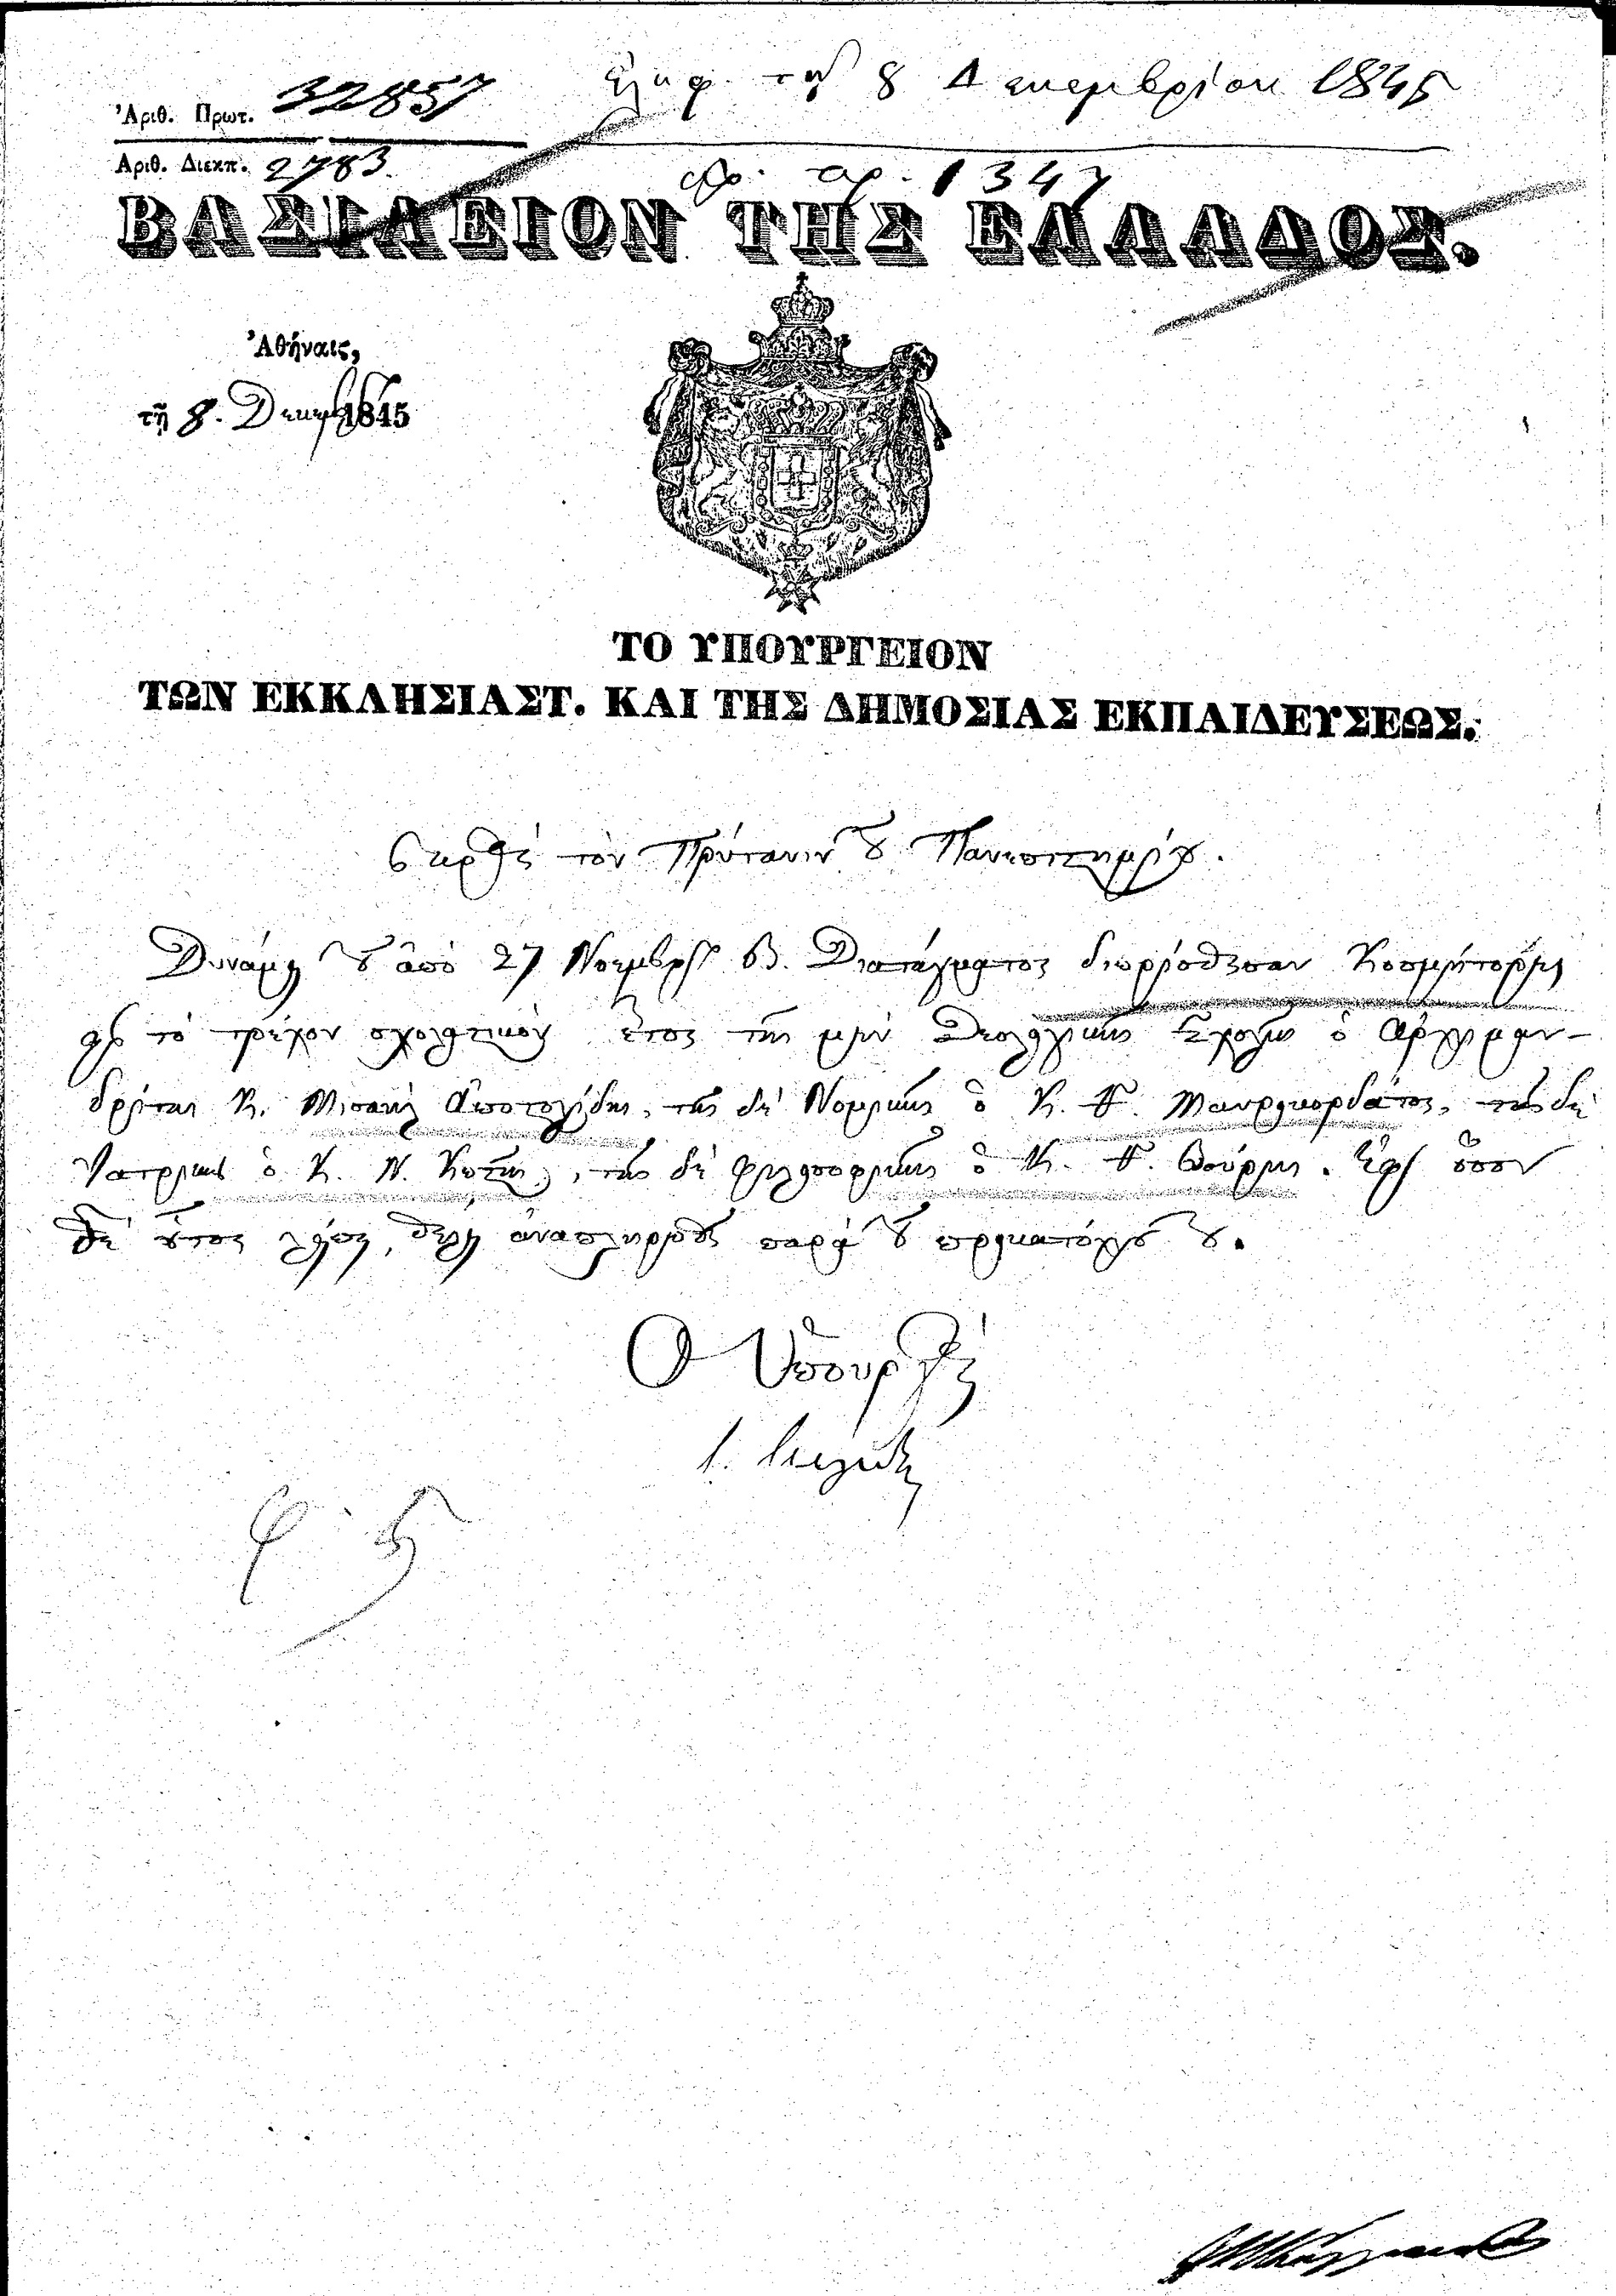 Ἀριθ. Πρωτ. 32857
ἐλήφ. τῇ 8 Δεκεμβρίου 1845
Ἀριθ. Διεκπ. 2783.
ἀρ. 1347
ΒΑΣΙΛΕΙΟΝ ΤΗΣ ΕΛΛΑΔΟΣ.
Ἀθήναις,
τῇ 8. Δεκεμβ 1845
ΤΟ ΥΠΟΥΡΓΕΙΟΝ
ΤΩΝ ΕΚΚΛΗΣΙΑΣΤ. ΚΑΙ ΤΗΣ ΔΗΜΟΣΙΑΣ ΕΚΠΑΙΔΕΥΣΕΩΣ.
Πρὸς τὸν Πρύτανιν τοῦ Πανεπιστημίου.
Δυνάμει τοῦ ἀπὸ 27 Νοεμβρίου Β. Διατάγματος διωρίσθησαν Κοσμήτορες
διὰ τὸ τρέχον σχολαστικὸν ἔτος τῆς μὲν Θεολογικῆς Σχολῆς ὁ Ἀρχιμαν-
δρίτης Κ. Μισαὴλ Ἀποστολίδης, τῆς δὲ Νομικῆς ὁ Κ. Γ. Μαυροκορδάτος, τῆς δὲ
Ἰατρικῆς ὁ Κ. Ν. Κωστῆς, τῆς δὲ φιλοσοφικῆς ὁ Κ. Γ. Βούρης. Ἐφ' ὅσον
δὲ οὗτος λείπει, θέλει ἀναπληροῦσθαι παρὰ τοῦ προκατόχου του.
Ὁ Ὑπουργὸς